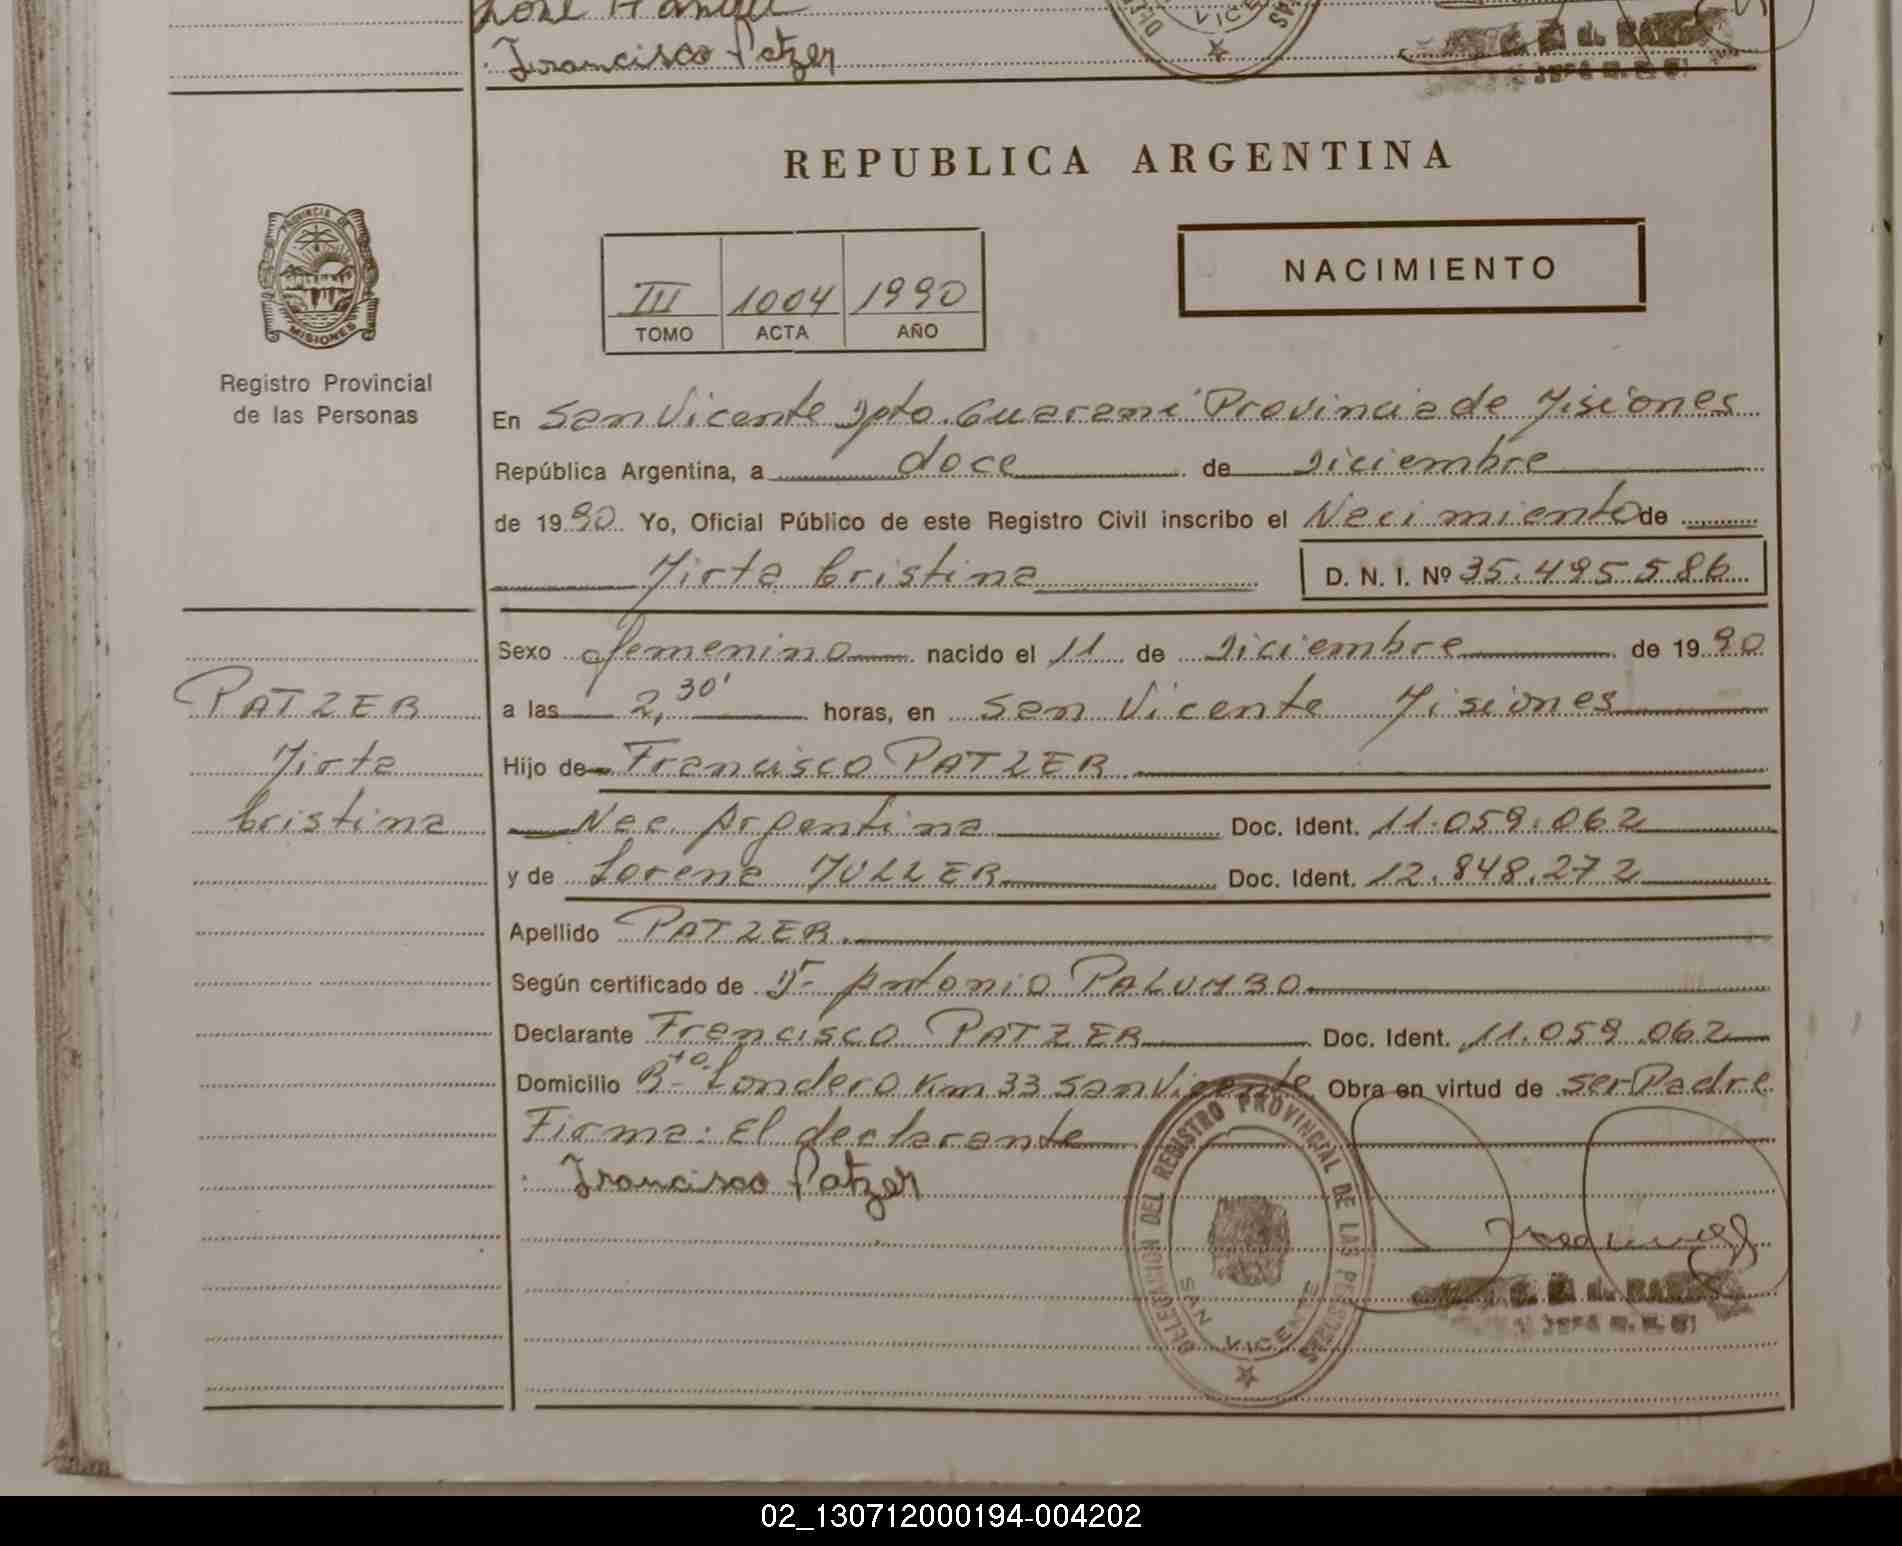 Francisco Patzer
REPUBLICA ARGENTINA
PROVINCIA DE
MISIONES
Registro Provincial
de las Personas
III 1004 1990
TOMO ACTA AÑO
NACIMIENTO
En San Vicente Dpto. Guarani Provincia de Misiones
República Argentina, a doce de Diciembre
de 1990 Yo, Oficial Público de este Registro Civil inscribo el Nacimiento de
Mirta Cristina D. N. I. Nº 35.495586
Sexo femenino nacido el 11 de Diciembre de 1990
a las 2,30' horas, en San Vicente Misiones
PATZER
Mirta
Cristina
Hijo de Francisco PATZER
Nac Argentina Doc. Ident. 11.059.062
y de Lorena MULLER Doc. Ident. 12.848.272
Apellido PATZER.
Según certificado de Dr Antonio PALUMBO
Declarante Francisco PATZER Doc. Ident. 11.059.062
Domicilio Bº Londero Km 33 San Vicente Obra en virtud de ser Padre
Firma: El declarante
Francisco Patzer
DELEGACION DEL REGISTRO PROVINCIAL DE LAS PERSONAS
SAN VICENTE
02_130712000194-004202